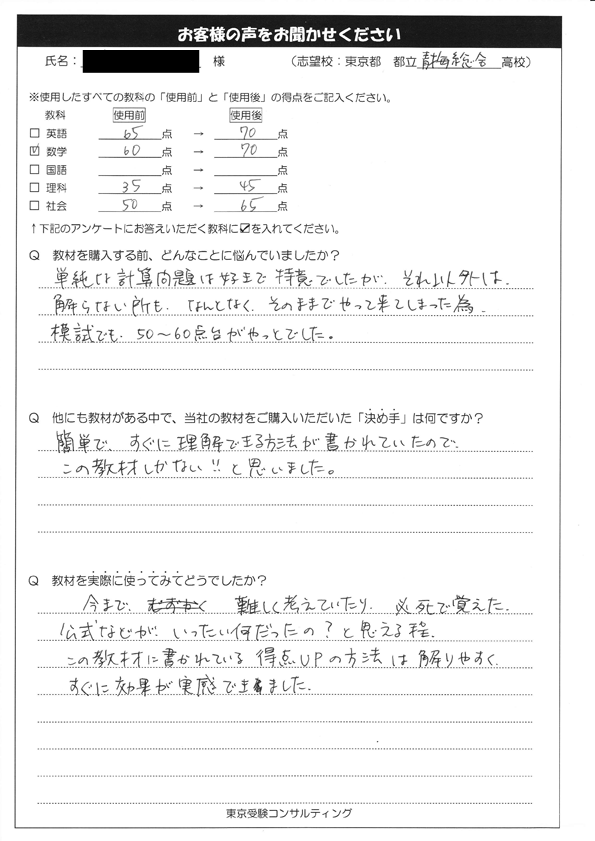 お客様の声をお聞かせください
氏名： 様 （志望校：東京都 都立 総合 高校）
※使用したすべての教科の「使用前」と「使用後」の得点をご記入ください。
教科 使用前 使用後
□ 英語 65 点 → 70 点
☑ 数学 60 点 → 70 点
□ 国語 点 → 点
□ 理科 35 点 → 45 点
□ 社会 50 点 → 65 点
↑下記のアンケートにお答えいただく教科に☑を入れてください。
Q 教材を購入する前、どんなことに悩んでいましたか？
単純な計算問題は好きで 特意でしたが、それ以外は、
解らない所も、なんとなく、そのままでやって来てしまった為、
模試でも、50～60点台がやっとでした。
Q 他にも教材がある中で、当社の教材をご購入いただいた「決め手」は何ですか？
簡単で、すぐに理解できる方法が書かれていたので、
この教材しかない!!と思いました。
Q 教材を実際に使ってみてどうでしたか？
今まで、難しく考えていたり、必死で覚えた、
公式などが、いったい何だったの？と思える程、
この教材に書かれている 得点UPの方法は 解りやすく、
すぐに効果が実感できました。
東京受験コンサルティング